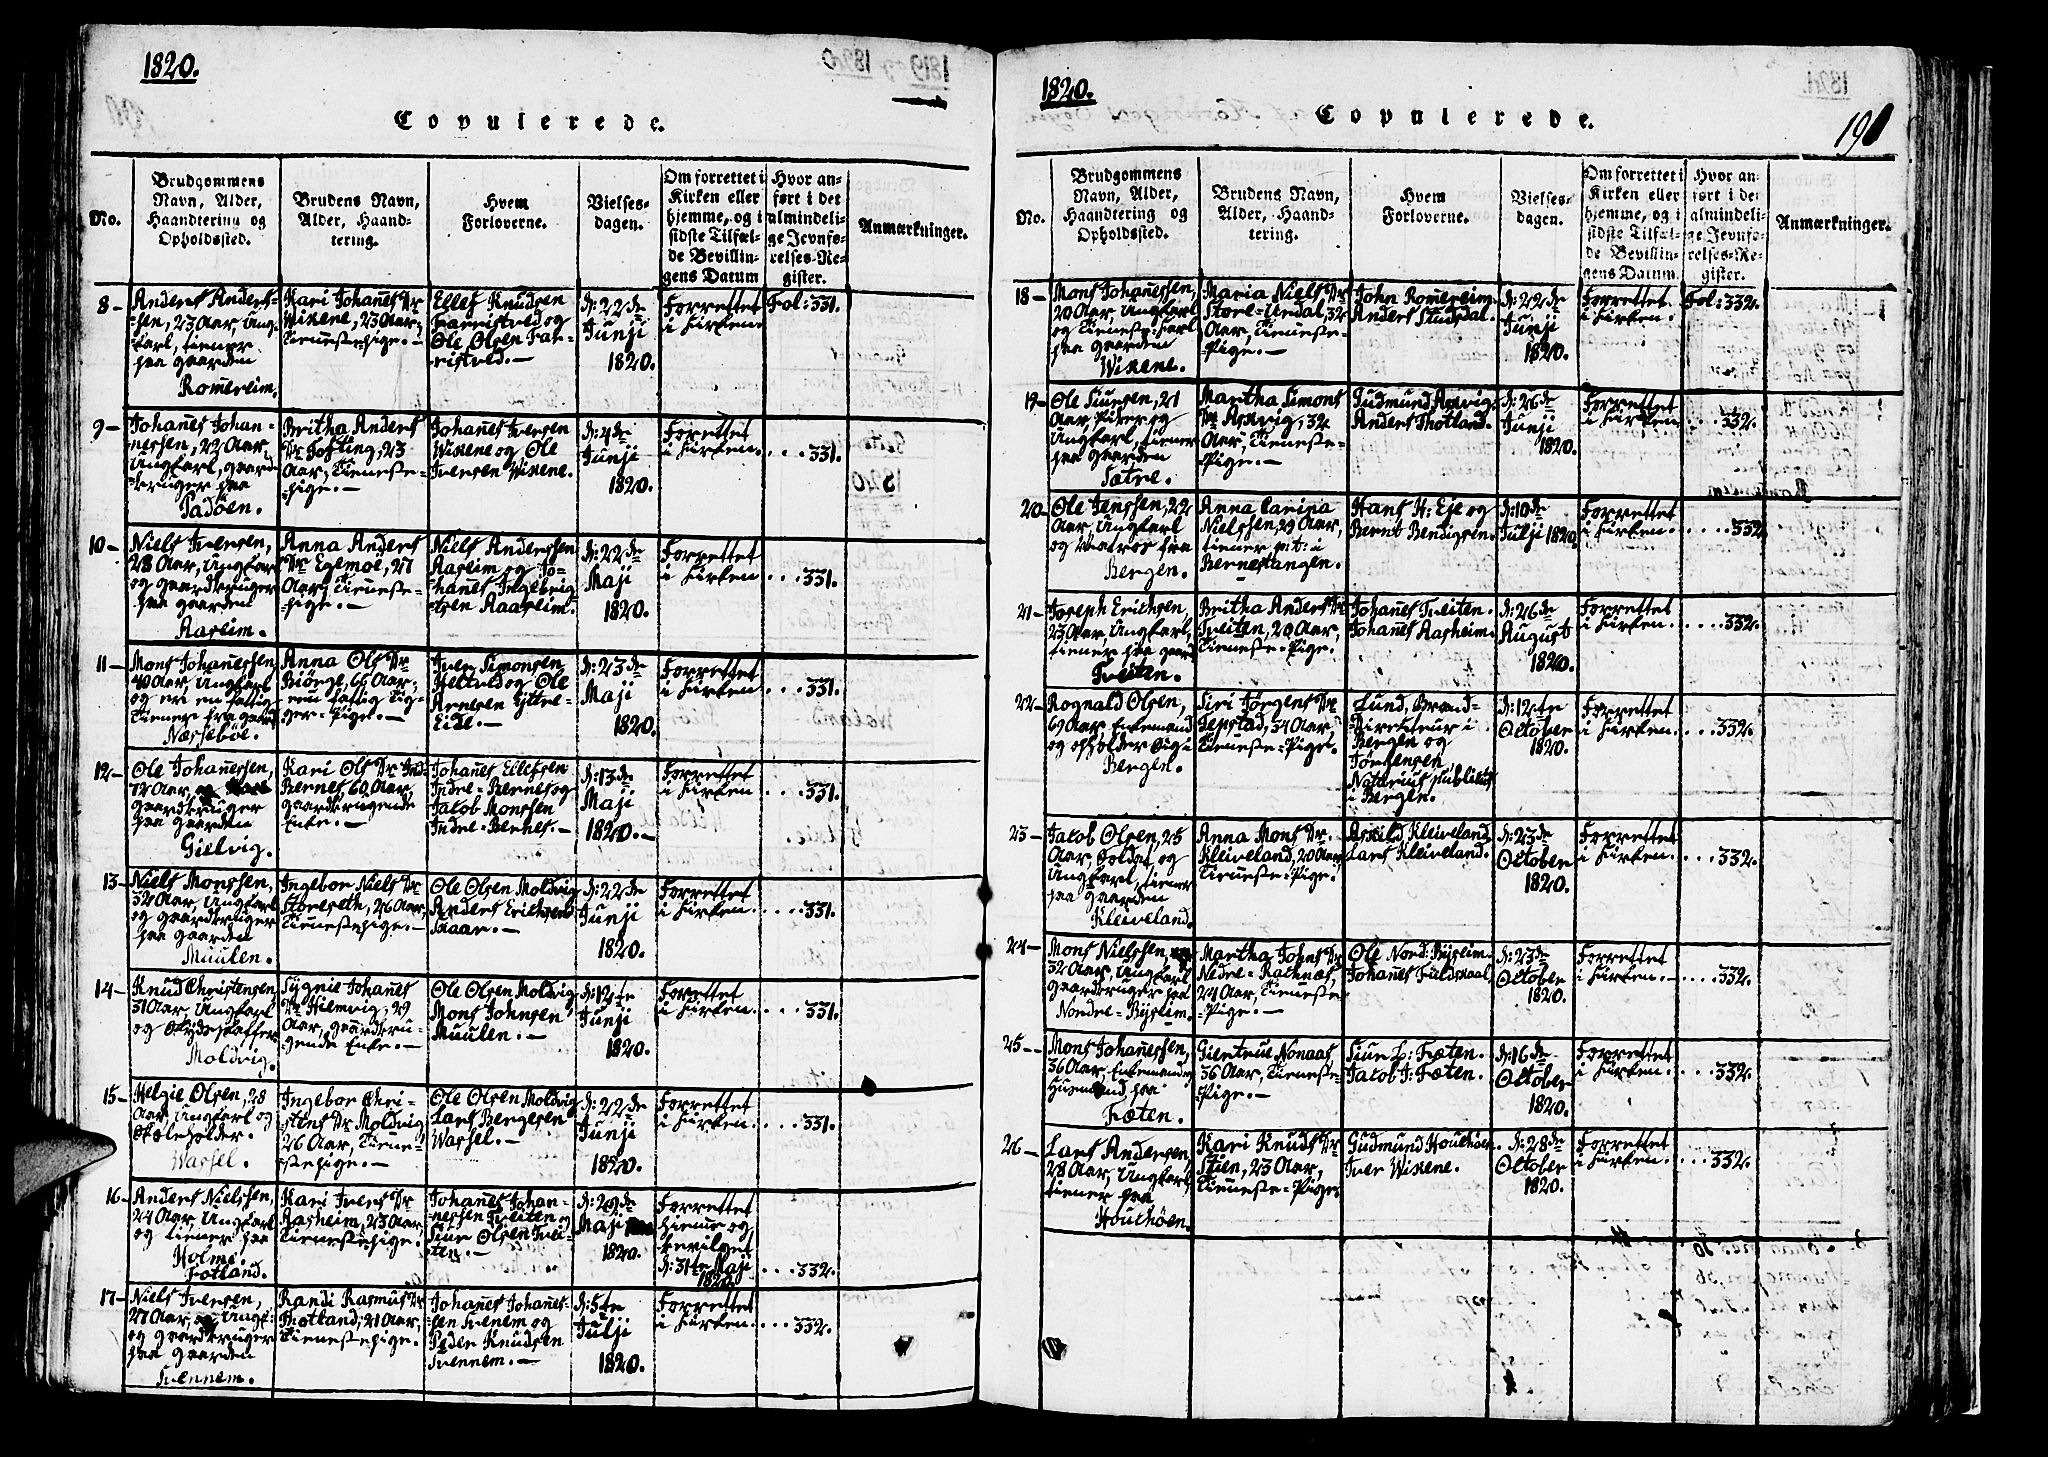 1820.
Copulerede.
No.
Brudgommens
Navn, Alder,
Haandtering og
Opholdssted.
Brudens Navn,
Alder, Haand-
tering.
Hvem
Forloverne.
Vielses-
dagen.
Om forrettet i
Kirken eller
hjemme, og i
sidste Tilfæl-
de Bevillin-
gens Datum
Hvor an-
ført i det
almindeli-
ge Jevnfø-
relses-Re-
gister.
Anmærkninger.
8-
Anders Anders-
sen, 23 Aar, Ung-
karl, tiener
paa Gaarden
Romereim.
Kari Johanes Dr
Wixene, 23 Aar,
Tienestepige.-
Ellef Knudsen
Farrestveld og
Ole Olsen Far-
ristveld.-
d: 22de
Junji
1820.
Forrettet
i Kirken.
Fol: 331.
9-
Johanes Johan-
nessen, 22 Aar,
Ungkarl, gaard-
bruger paa
Padöen.
Britha Anders
Dr Tofting, 23
Aar, Tieneste-
pige.-
Johanes Iversen
Wixene og Ole
Iversen Wixene.
d: 4de
Junji
1820.
Forrettet
i Kirken.
331.
10-
Niels Iversen,
28 Aar, Ungkarl
og gaardbruger
paa gaarden
Aaseim.
Anna Anders
Dr Egemoe, 27
Aar, Tieneste-
pige.-
Niels Anderssen
Aaseim og Jo-
hanes Ingebrig-
tsen Aaseim.
d: 22de
Maji
1820.
Forrettet
i Kirken
331.
11-
Mons Johanessen
40 Aar, Ungkarl
og er en fattig
Tiener fra gaard
Næssebøe.
Anna Ols Dr
Biörge, 66 Aar,
een fattig Tig-
ger-Pige.-
Iver Simonsen
Heltveld og Ole
Arnesen Ejttre-
Eide.-
d: 23de
Maji
1820.
Forrettet
i Kirken
331.
12-
Ole Johanessen,
72 Aar, og
gaardbruger
paa gaarden
Gielvig.
Kari Ols Dr Ind.
Bernes, 60 Aar,
gaardbrugende
Enke.-
Johanes Ellefsen
Indre-Bernes og
Jacob Monssen
Indre-Bernes.-
d: 13de
Maji
1820.-
Forrettet
i Kirken.
331.
13-
Niels Monssen,
32 Aar, Ungkarl
og gaardbruger
paa gaarden
Muulen.
Ingebor Niels Dr
Storeseth, 26 Aar,
Tienestepige.-
Ole Olsen Moldvig
Anders Erichsen
Skaar.-
d: 22de
Junji
1820.
Forrettet
i Kirken.
331.
14-
Knud Christensen
31 Aar, Ungkarl
og Skydsskaffer
Moldvig.
Sygnie Johanes
Dr Hiemvig, 29
Aar, gaardbru-
gende Enke.-
Ole Olsen Moldvig
Mons Johnsen
Muulen.-
d: 12te
Junji
1820.
Forrettet
i Kirken.
331.
15-
Helgie Olsen, 28
Aar, Ungkarl og
Skoleholder.
Wassel.
Ingebor Chri-
stens Dr Moldvig
26 Aar, Tiene-
stepige.-
Ole Olsen Moldvig
Lars Bergesen
Wassel.-
d: 22de
Junji
1820.
Forrettet
i Kirken.
331.
16-
Anders Nielssen,
24 Aar, Ungkarl
og tiener paa
Holme-
Fotland.
Kari Ivers Dr
Aasheim, 23 Aar,
Tienestepige.
Johanes Johan-
nessen Tveiten og
Siur Olsen Tvei-
ten.-
d: 29de
Maji
1820.
Forrettet
hieme og
bevilget
d: 31te Maji
1820.
332.
17-
Niels Iversen,
27 Aar, Ungk:
og gaardbruger
paa gaarden
Tvennem.
Randi Rasmus Dr
Thotland, 21 Aar,
Tienestepige.
Johanes Johanes-
sen Tvenem og
Peder Knudsen
Tvennem.-
d: 5te
Julji
1820.
Forrettet
i Kirken.
332.
1820.
Copulerede.
190
No.
Brudgommens
Navn, Alder,
Haandtering og
Opholdssted.
Brudens Navn,
Alder, Haand-
tering.
Hvem
Forloverne.
Vielses-
dagen.
Om forrettet i
Kirken eller
hjemme, og i
sidste Tilfæl-
de Bevillin-
gens Datum.
Hvor an-
ført i det
almindeli-
ge Jevnfø-
relses-Re-
gister.
Anmærkninger.
18-
Mons Johanessen,
20 Aar, Ungkarl
og Tieneste-Karl
paa gaarden
Wixene.
Maria Niels Dr
Store-Urdal, 32
Aar, Tieneste-
Pige.-
John Romereim.
Anders Studsdal.
d: 22de
Junji
1820.
Forrettet
i Kirken.
Fol: 332.
19-
Ole Siursen, 21
Aar, og
Ungkarl, tiener
paa gaarden
Sætre.
Martha Simons
Dr Askvig, 32
Aar, Tieneste-
Pige.-
Gudmund Askvig
Anders Thotland.
d: 26de
Junji
1820.
Forrettet
i Kirken
332.
20-
Ole Jenssen, 22
Aar, Ungkarl
og Matros fra
Bergen.
Anna Carina
Nielssen, 29 Aar,
tiener p:t: i
Bernestangen.
Hans H: Eje og
Bernt Bendigsen.
d: 10de
Julji 1820.
Forrettet
i Kirken.
332.
21-
Joseph Erichsen,
23 Aar, Ungkarl,
tiener paa gaard
Tveiten.
Britha Anders Dr
Tveiten, 20 Aar,
Tieneste-Pige.
Johanes Tveiten.
Johanes Aasheim.
d: 26de
August
1820.
Forrettet
i Kirken.
332.
22-
Rognald Olsen,
69 Aar, Enkemand
og opholder sig i
Bergen.
Siri Jørgens Dr
Repstad, 34 Aar,
Tieneste-Pige.
Lund, Brand-
Directeur i
Bergen og
Jørgensen
Notarius publicus
i Bergen.
d: 12te
October
1820.
Forrettet
i Kirken.
332.
23-
Jacob Olsen, 25
Aar, Soldat og
Ungkarl, tiener
paa gaarden
Kleiveland.
Anna Mons Dr
Kleiveland, 20 Aar,
Tieneste-Pige.
Askild Kleiveland.
Lars Kleiveland.
d: 23de
October
1820.
Forrettet
i Kirken.
332.
24-
Mons Nielssen,
32 Aar, Ungkarl
gaardbruger paa
Nordre-Byseim.
Martha Johns Dr
Nedre-Kathnæs,
24 Aar, Tieneste-
Pige.-
Ole Nord: Byseim.
Johanes Fieldskaal.
d: 23de
October
1820.
Forrettet
i Kirken.
332.
25-
Mons Johanessen,
36 Aar, Enkemand og
Huusmand paa
Fræten.
Giertrue Nonaas
36 Aar, Tieneste-
Pige.-
Siur L: Fræten.
Jacob J: Fræten.
d: 16de
October
1820.
Forrettet
i Kirken.
332.
26-
Lars Andersen,
28 Aar, Ungkarl,
tiener paa
Houthöen.
Kari Knuds Dr
Stien, 23 Aar,
Tieneste-Pige
Gudmund Houthöen.
Iver Wixene.
d: 28de
October
1820.
Forrettet
i Kirken.
332.